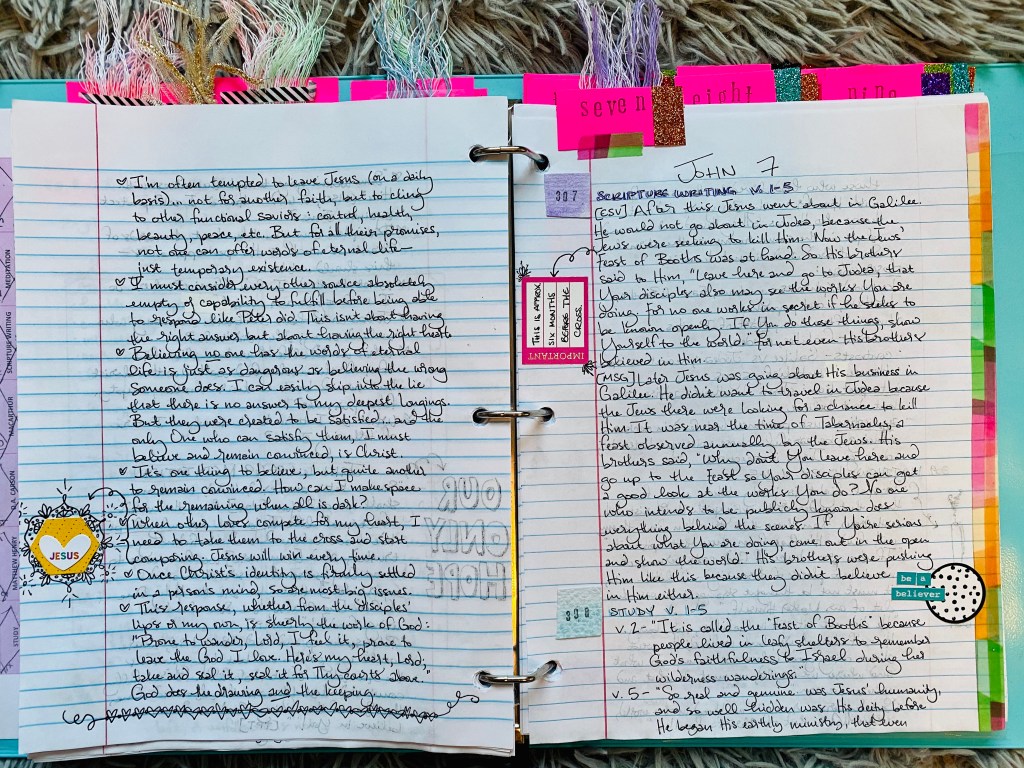 seven
eight
nine
♡ I'm often tempted to leave Jesus (on a daily
basis)... not for another faith, but to cling
to other functional saviors: control, health,
beauty, peace, etc. But for all their promises,
not one can offer words of eternal life—
just temporary existence.
♡ I must consider every other source absolutely
empty of capability to fulfill before being able
to respond like Peter did. This isn't about having
the right answer but about having the right heart
♡ Believing no one has the words of eternal
life is just as dangerous as believing the wrong
someone does. I can easily slip into the lie
that there is no answer to my deepest longings.
But they were created to be satisfied... and the
only One who can satisfy them, I must
believe and remain convinced, is Christ.
♡ It's one thing to believe, but quite another
to remain convinced. How can I make space
for the remaining when all is dark?
♡ When other loves compete for my heart, I
need to take them to the cross and start
comparing. Jesus will win every time.
♡ Once Christ's identity is firmly settled
in a person's mind, so are most big issues.
♡ This response, whether from the disciples'
lips or my own, is sheerly the work of God:
"Prone to wander, Lord, I feel it, prone to
leave the God I love. Here's my heart, Lord,
take and seal it, seal it for Thy courts above."
God does the drawing and the keeping.
JESUS
OUR
ONLY
HOPE
MEDITATION
SCRIPTURE WRITING
MACARTHUR
D.A. CARSON
MATTHEW HENRY
STUDY
JOHN 7
307
SCRIPTURE WRITING v. 1-5
[ESV] After this Jesus went about in Galilee.
He would not go about in Judea, because the
Jews were seeking to kill Him. Now the Jews'
Feast of Booths was at hand. So His brothers
said to Him, "Leave here and go to Judea, that
Your disciples also may see the works You are
doing. For no one works in secret if he seeks to
be known openly. If You do these things, show
Yourself to the world." For not even His brothers
believed in Him.
[MSG] Later Jesus was going about His business in
Galilee. He didn't want to travel in Judea because
the Jews there were looking for a chance to kill
Him. It was near the time of Tabernacles, a
feast observed annually by the Jews. His
brothers said, "Why don't You leave here and
go up to the Feast so Your disciples can get
a good look at the works You do? No one
who intends to be publicly known does
everything behind the scenes. If You're serious
about what You are doing, come out in the open
and show the world." His brothers were pushing
Him like this because they didn't believe
in Him either.
IMPORTANT
THIS IS APPROX
SIX MONTHS
BEFORE THE
CROSS
308
STUDY v. 1-5
v. 2- "It is called the 'Feast of Booths' because
people lived in leafy shelters to remember
God's faithfulness to Israel during her
wilderness wanderings."
v. 5- "So real and genuine was Jesus' humanity,
and so well hidden was His deity before
He began His earthly ministry, that even
be a
believer